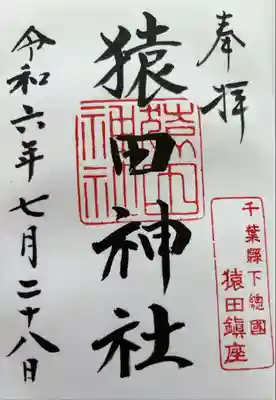 奉拝
千葉縣下總國
猿田鎮座
猿田神社
猿田神社
令和六年七月二十八日